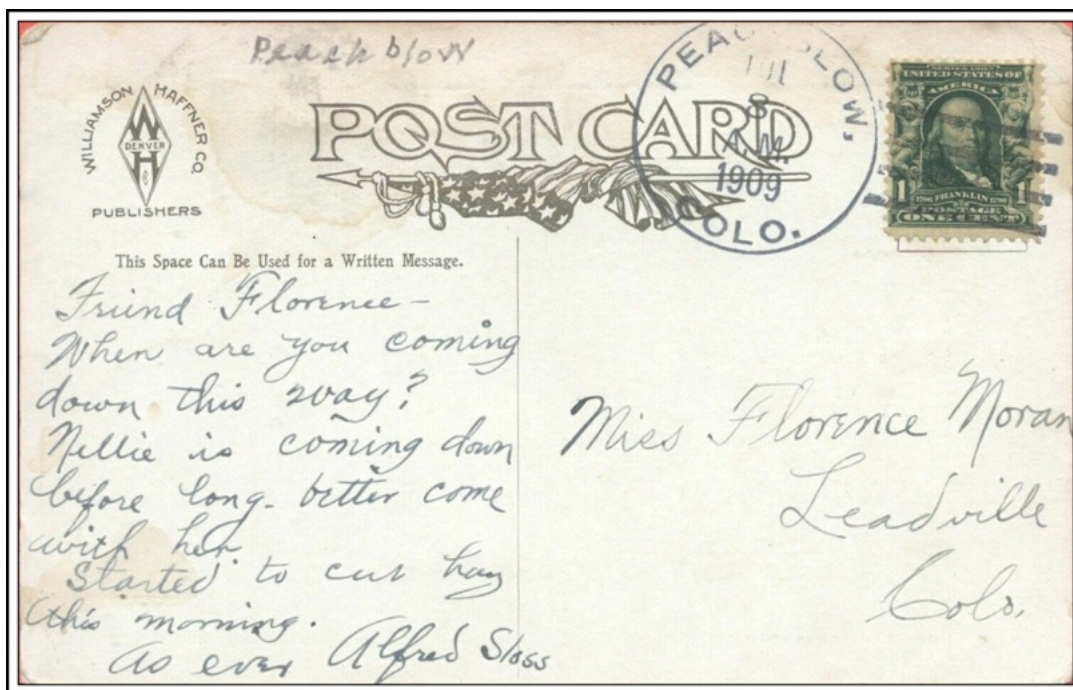 Peach blow
WILLIAMSON HAFFNER CO.
W
DENVER
H
PUBLISHERS
POST CARD
PEACHBLOW,
JUL
3
A.M.
1909
COLO.
SERIES 1902
UNITED STATES OF
AMERICA
1 1706 FRANKLIN 1790 1
ONE CENT
This Space Can Be Used for a Written Message.
Friend Florence –
When are you coming
down this way?
Nellie is coming down
before long - better come
with her.
Started to cut hay
this morning.
As ever Alfred Sloss
Miss Florence Moran
Leadville
Colo.